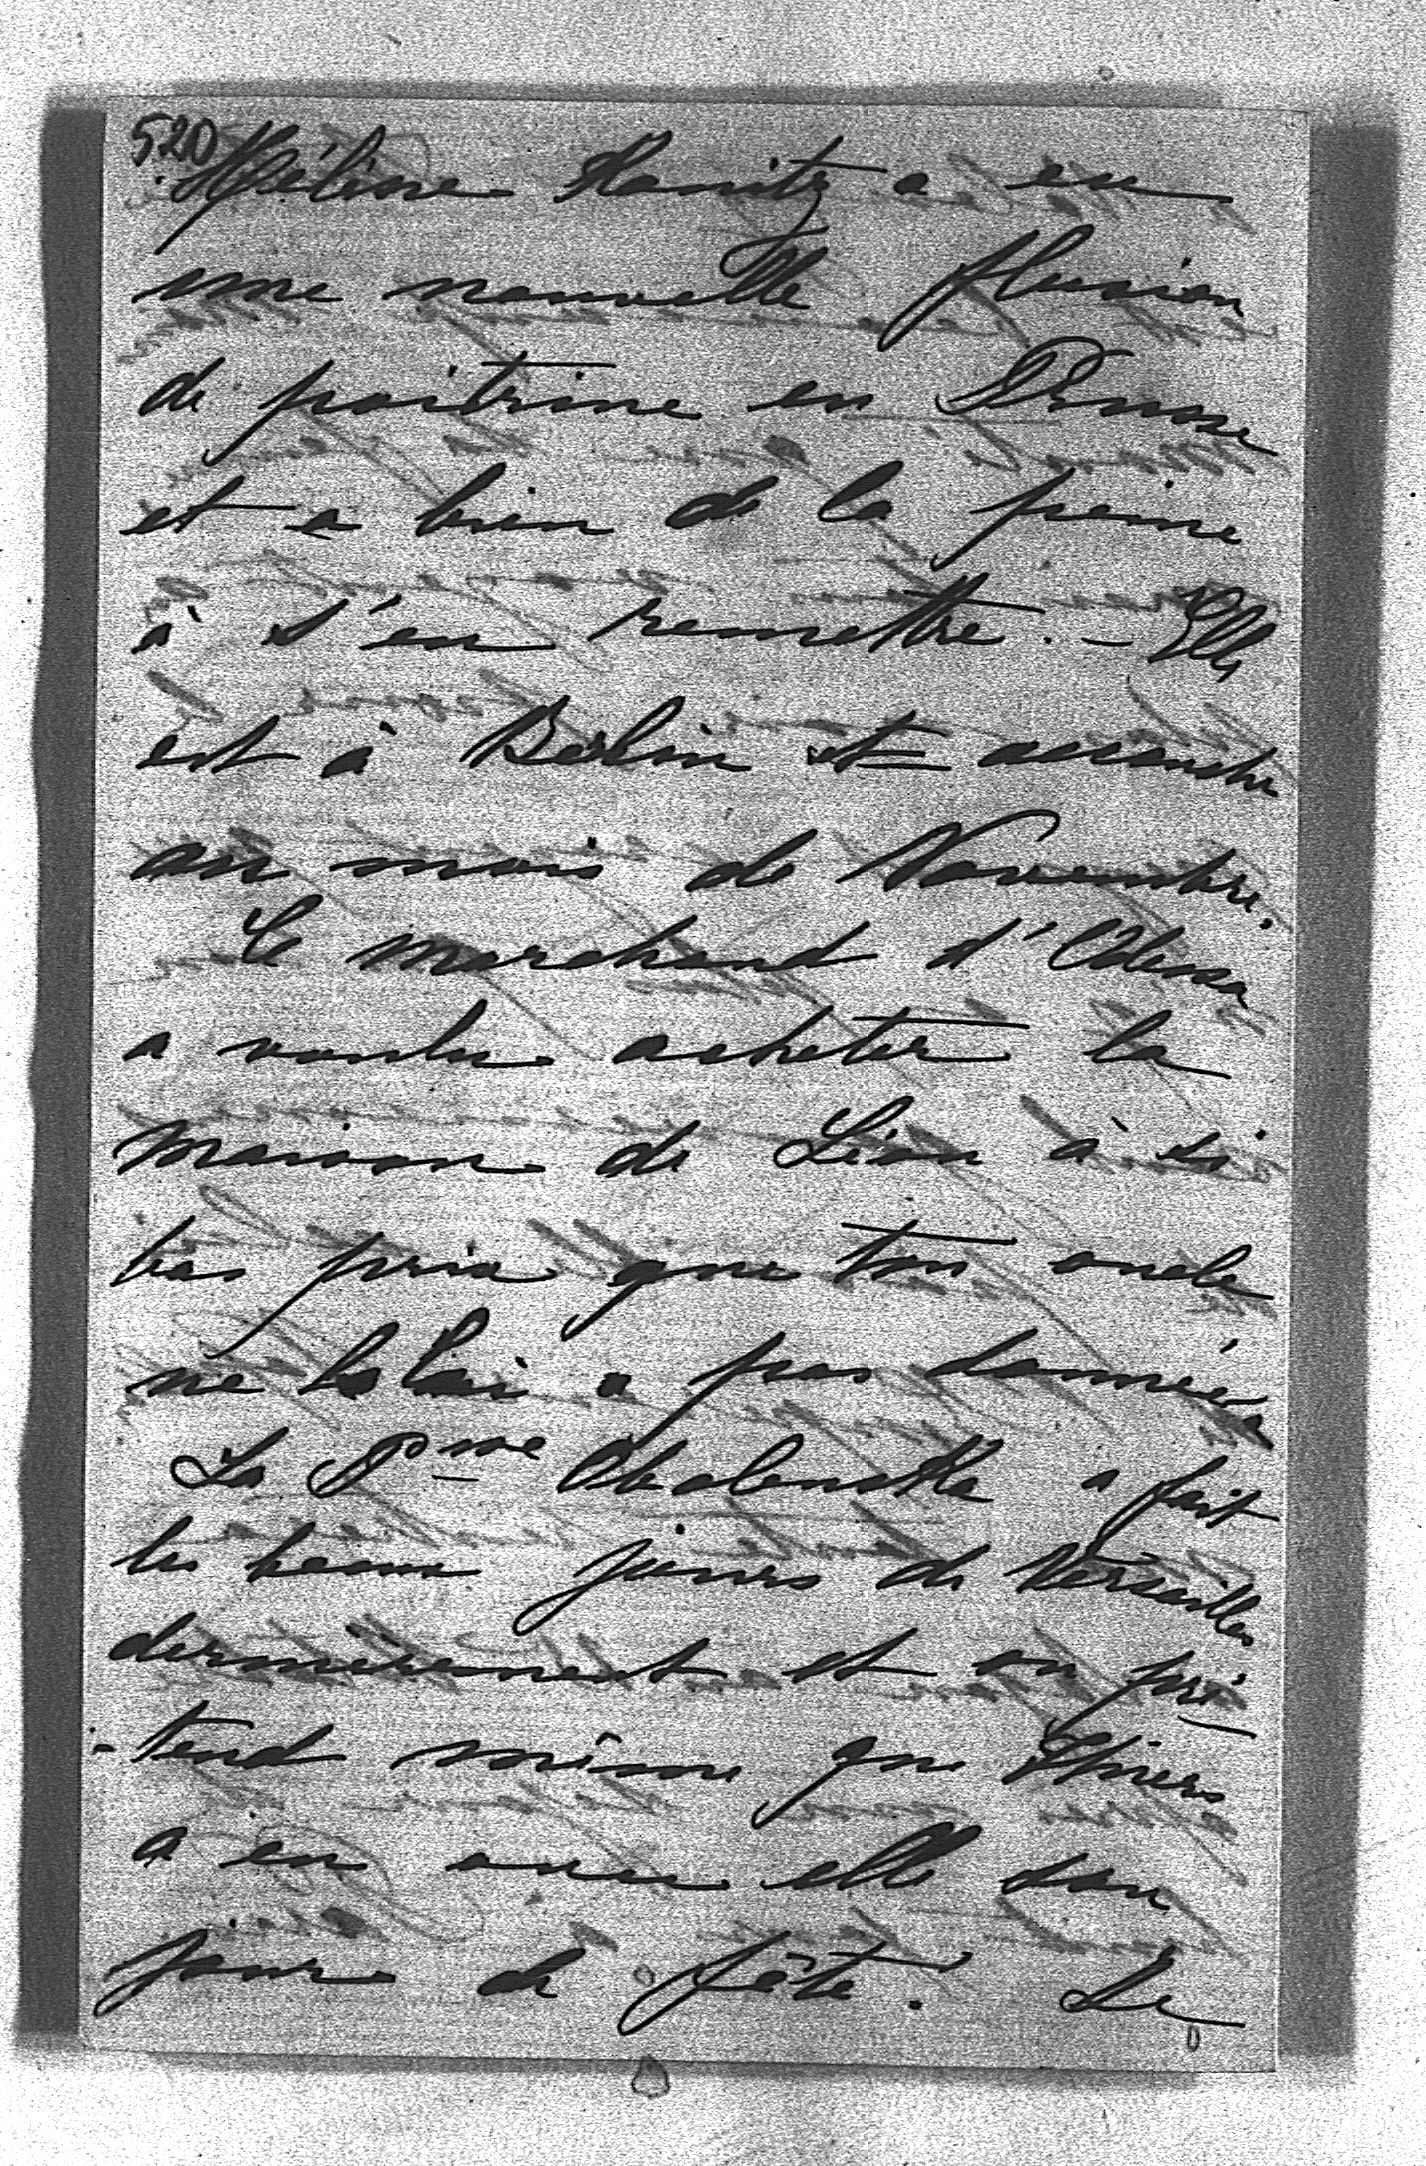 520
Hélène Kanitz a eu
une nouvelle fluxion
de poitrine en Prusse
et a bien de la peine
à s'en remettre. – Elle
est à Berlin et accouche
au mois de Novembre.
Le marchand d'Odessa
a voulu acheter la
maison de Léon à si
bas prix que ton oncle
ne la lui a pas donnée
La Pme a fait
les beaux jours de Versailles
dernièrement et on pré-
-tend même que Thiers
a eu avec elle son
jour de fête. Le